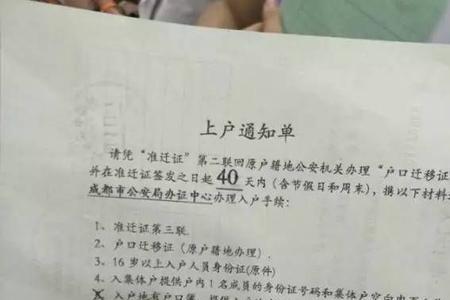 上户通知单
请凭“准迁证”第二联回原户籍地公安机关办理“户口迁移证
并在准迁证签发之日起40天内(含节假日和周末),携以下材料
成都市公安局办证中心办理入户手续:
1、准迁证第三联
2、户口迁移证(原户籍地办理).
3、16岁以上入户人员身份证(原件)
4、入集体户提供户内1名成员的身份证号码和集体户
入户地有户口簿